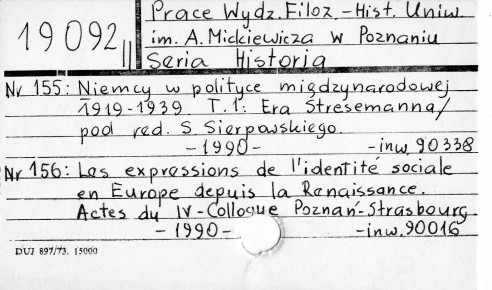 19092 II
Prace Wydz. Filoz.-Hist. Uniw.
im. A. Mickiewicza w Poznaniu
Seria Historia
Nr 155: Niemcy w polityce międzynarodowej
1919-1939 T.1: Era Stresemanna/
pod red. S. Sierpowskiego.
- 1990 - - inw. 90338
Nr 156: Les expressions de l'identité sociale
en Europe depuis la Renaissance.
Actes du IV-Colloque Poznań-Strasbourg.
- 1990 - - inw. 90016
DUJ 897/73. 15000